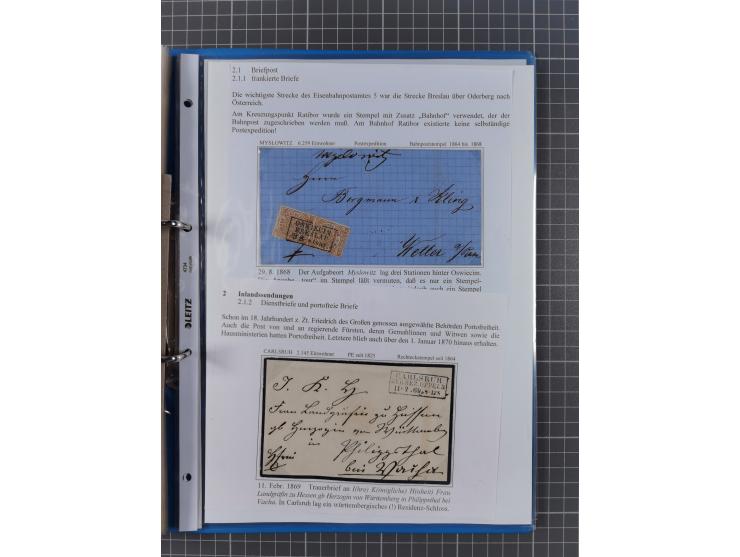 2.1 Briefpost
2.1.1 frankierte Briefe
Die wichtigste Strecke des Eisenbahnpostamtes 5 war die Strecke Breslau über Oderberg nach
Österreich.
Am Kreuzungspunkt Ratibor wurde ein Stempel mit Zusatz „Bahnhof" verwendet, der der
Bahnpost zugeschrieben werden muß. Am Bahnhof Ratibor existierte keine selbständige
Postexpedition!
MYSLOWITZ 6.259 Einwohner Postexpedition Bahnpoststempel 1864 bis 1868
Myslowitz
Herrn
Bergmann & Kling
OSWIECIM
BRESLAU
Wetter a/Ruhr
29. 8. 1868 Der Aufgabeort Myslowitz lag drei Stationen hinter Oswiecim.
tour" im Stempel läßt vermuten, daß es nur ein Stempel-
auch ein Stempel
2 Inlandssendungen
2.1.2 Dienstbriefe und portofreie Briefe
Schon im 18. Jahrhundert z. Zt. Friedrich des Großen genossen ausgewählte Behörden Portofreiheit.
Auch die Post von und an regierende Fürsten, deren Gemahlinnen und Witwen sowie die
Hausministerien hatten Portofreiheit. Letztere blieb auch über den 1. Januar 1870 hinaus erhalten.
CARLSRUH 2.145 Einwohner PE seit 1825 Rechteckstempel seit 1864
CARLSRUH
REG.BEZ.OPPELN
J. K. H.
Frau Landgräfin zu Hessen
gb Herzogin von Württemberg
in Philippsthal
bei Vacha
11. Febr. 1869 Trauerbrief an I(hre) K(önigliche) H(oheit) Frau
Landgräfin zu Hessen gb Herzogin von Würtemberg in Philippsthal bei
Vacha. In Carlsruh lag ein württembergisches (!) Residenz-Schloss.
LEITZ
4734